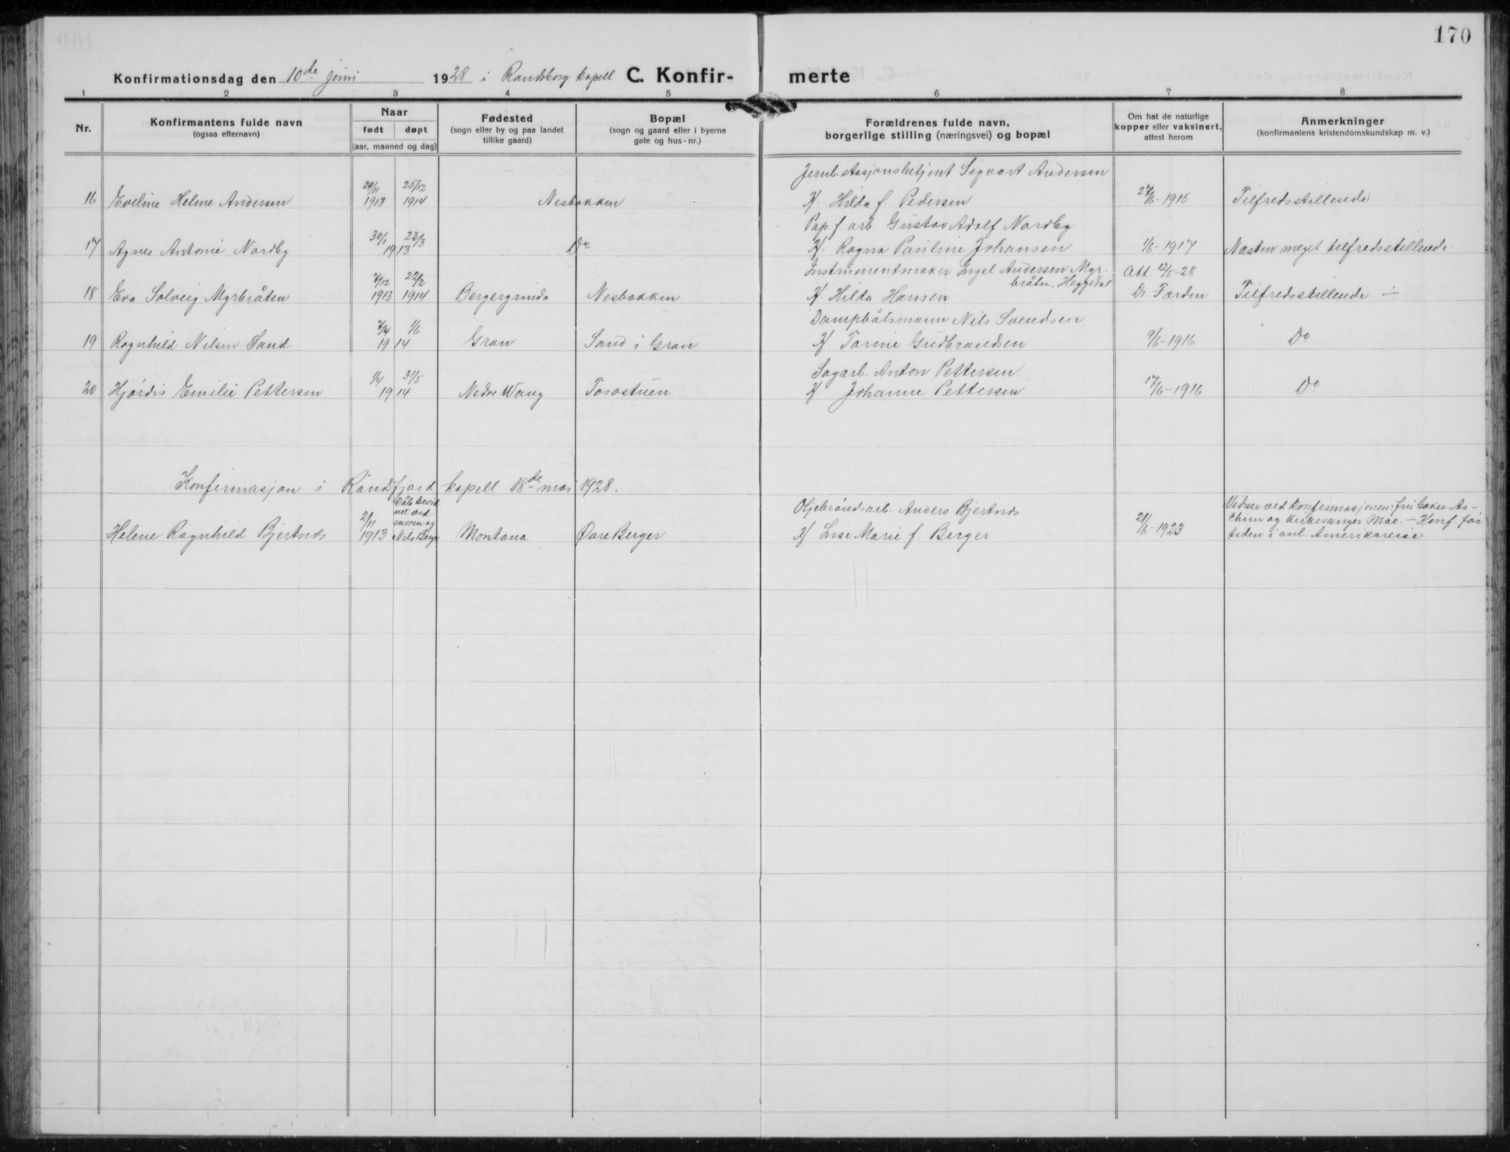 170
Konfirmationsdag den 10de juni 1928 i Randsborg kapell C. Konfirmerte
1 2 3 4 5 6 7 8
Nr.
Konfirmantens fulde navn
(ogsaa efternavn)
Naar
født døpt
(aar, maaned og dag)
Fødested
(sogn eller by og paa landet
tillike gaard)
Bopæl
(sogn og gaard eller i byerne
gate og hus-nr.)
Forældrenes fulde navn,
borgerlige stilling (næringsvei) og bopæl
Om hat de naturlige
kopper eller vaksinert,
attest herom
Anmerkninger
(konfirmantens kristendomskundskap m. v.)
Sigvart Andersen
20/11 25/12
16 Eveline Helene Andersen 1913 1914 Nesbakken K/ Hilda f. Pedersen 1915 Tilfredsstillende
Pap.f.arb. Gustav Adolf Nordby
30/1 23/3
17 Agnes Antonie Nordby 1913 Do K/ Ragna Pauline Johansen 1/6-1917 Næsten meget tilfredsstillende
Instrumentmaker Engel Andersen Myr-
bråten, Heggedal
Att 12/5-28
22/2
18 Eva Solveig Myrbråten 1913 1914 Bergergrunda Nesbakken K/ Hilda Hansen Dr Farden Tilfredsstillende ÷
Dampbåtsmann Nils Svendsen
1/6
19 Ragnhild Nilsen Sand 1914 Gran Sand i Gran K/ Gudbrandsen 9/6-1916 Do
Sagarb. Anton Pettersen
31/5
20 Hjørdis Emilie Pettersen 1914 Nedre Wang Tosostuen K/ Johanne Pettersen 17/6-1916 Do
Konfirmasjon i Randsfjord kapell 18de mai 1928.
Oljebrøndsarb. Anders Bjertnes
2/11
Helene Ragnhild Bjertnes 1913 Nils Berger Montana Øvre Berger K/ Lise Marie f Berger 21/6-1923
Vidner ved Konfirmasjonen: fru baker As-
chim og kirkesanger Moe. – Konf. før
tiden i anl. Amerikareise